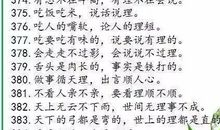 375. 吃饭吃米，说话说理。
376. 吃人的嘴软，论人的理短。
377. 吃要吃有味的，说要说有理的。
378. 会走走不过影，会说说不过理。
379. 舌头是肉长的，事实是铁打的。
380. 做事循天理，出言顺人心。
381. 不看人亲不亲，要看理顺不顺。
382. 天上无云不下雨，世间无理事不成。
383. 天下的弓都是弯的，世上的理都是直的